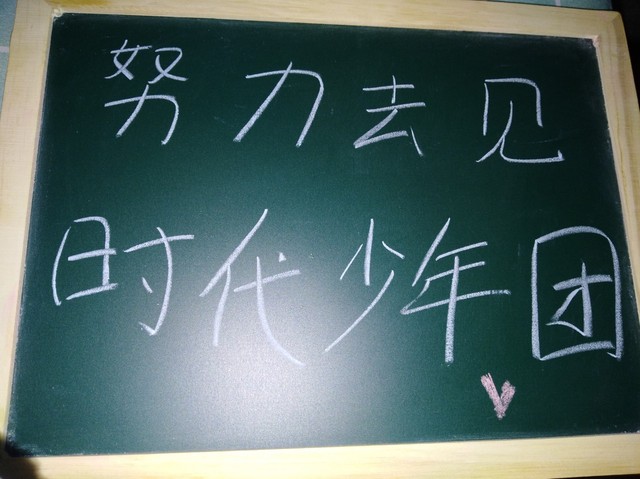 努力去见
时代少年团